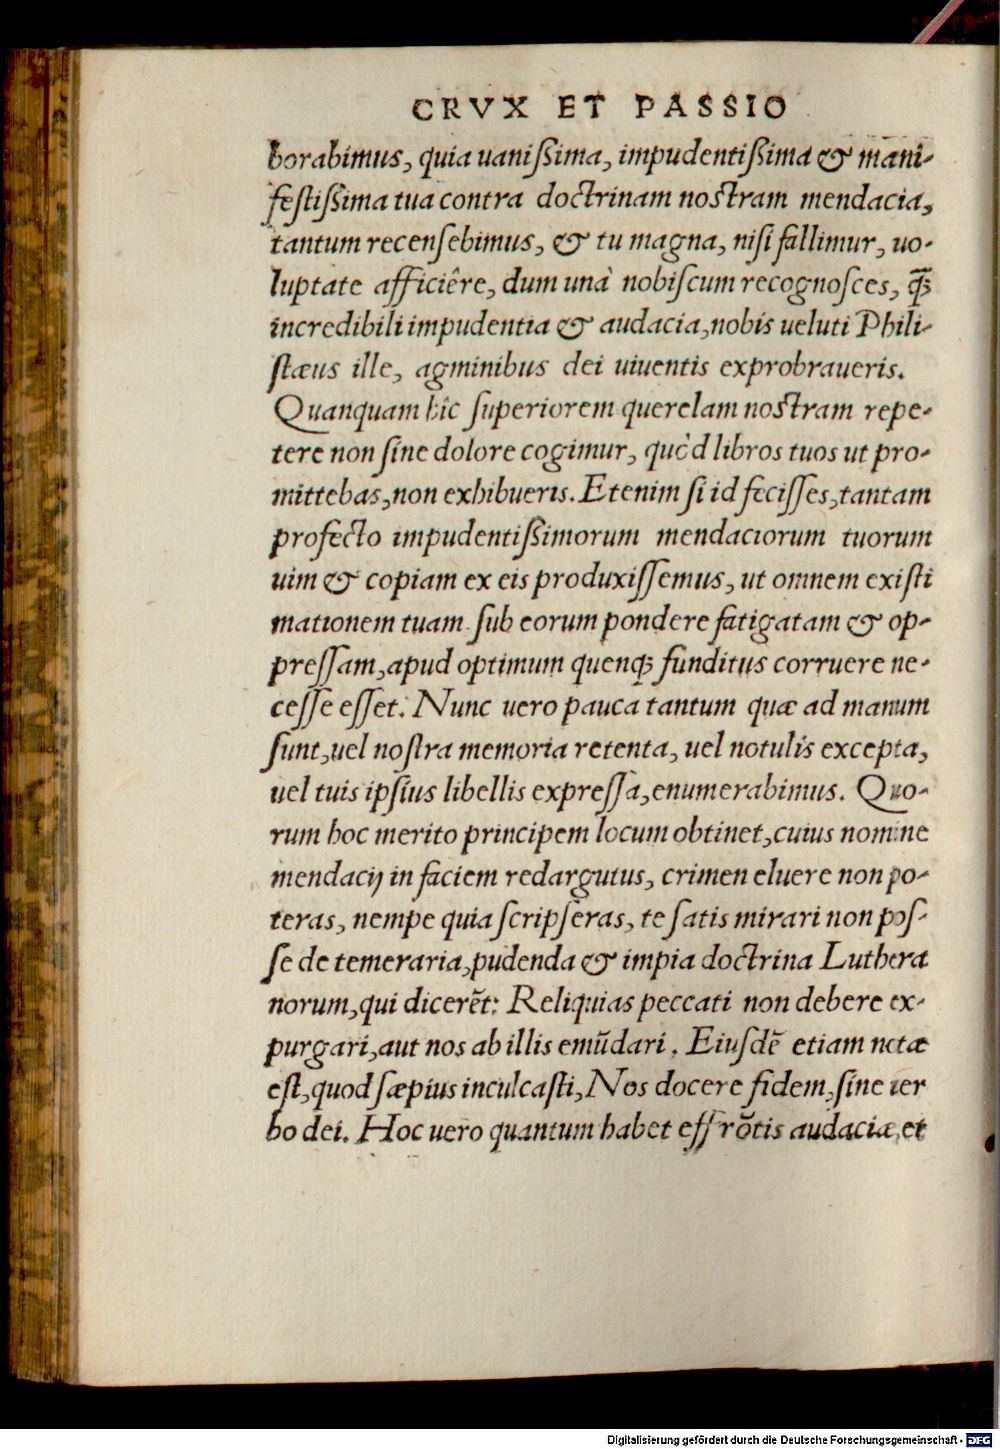 CRVX ET PASSIO
borabimus, quia uanißima, impudentißima & mani-
festißima tua contra doctrinam nostram mendacia,
tantum recensebimus, & tu magna, nisi fallimur, uo-
luptate afficiêre, dum unà nobiscum recognosces, q̃ꝫ
incredibili impudentia & audacia, nobis ueluti Phili-
stæus ille, agminibus dei uiuentis exprobraueris.
Quanquam hîc superiorem querelam nostram repe-
tere non sine dolore cogimur, quòd libros tuos ut pro-
mittebas, non exhibueris. Etenim si id fecisses, tantam
profecto impudentißimorum mendaciorum tuorum
uim & copiam ex eis produxissemus, ut omnem existi
mationem tuam sub eorum pondere fatigatam & op-
pressam, apud optimum quenqꝫ funditus corruere ne-
cesse esset. Nunc uero pauca tantum quæ ad manum
sunt, uel nostra memoria retenta, uel notulis excepta,
uel tuis ipsius libellis expressa, enumerabimus. Quo-
rum hoc merito principem locum obtinet, cuius nomine
mendacij in faciem redargutus, crimen eluere non po-
teras, nempe quia scripseras, te satis mirari non pos-
se de temeraria, pudenda & impia doctrina Luthera
norum, qui dicerẽt: Reliquias peccati non debere ex-
purgari, aut nos ab illis emũdari. Eiusdẽ etiam notæ
est, quod sæpius inculcasti, Nos docere fidem, sine uer
bo dei. Hoc uero quantum habet effrõtis audaciæ, et
Digitalisierung gefördert durch die Deutsche Forschungsgemeinschaft - DFG